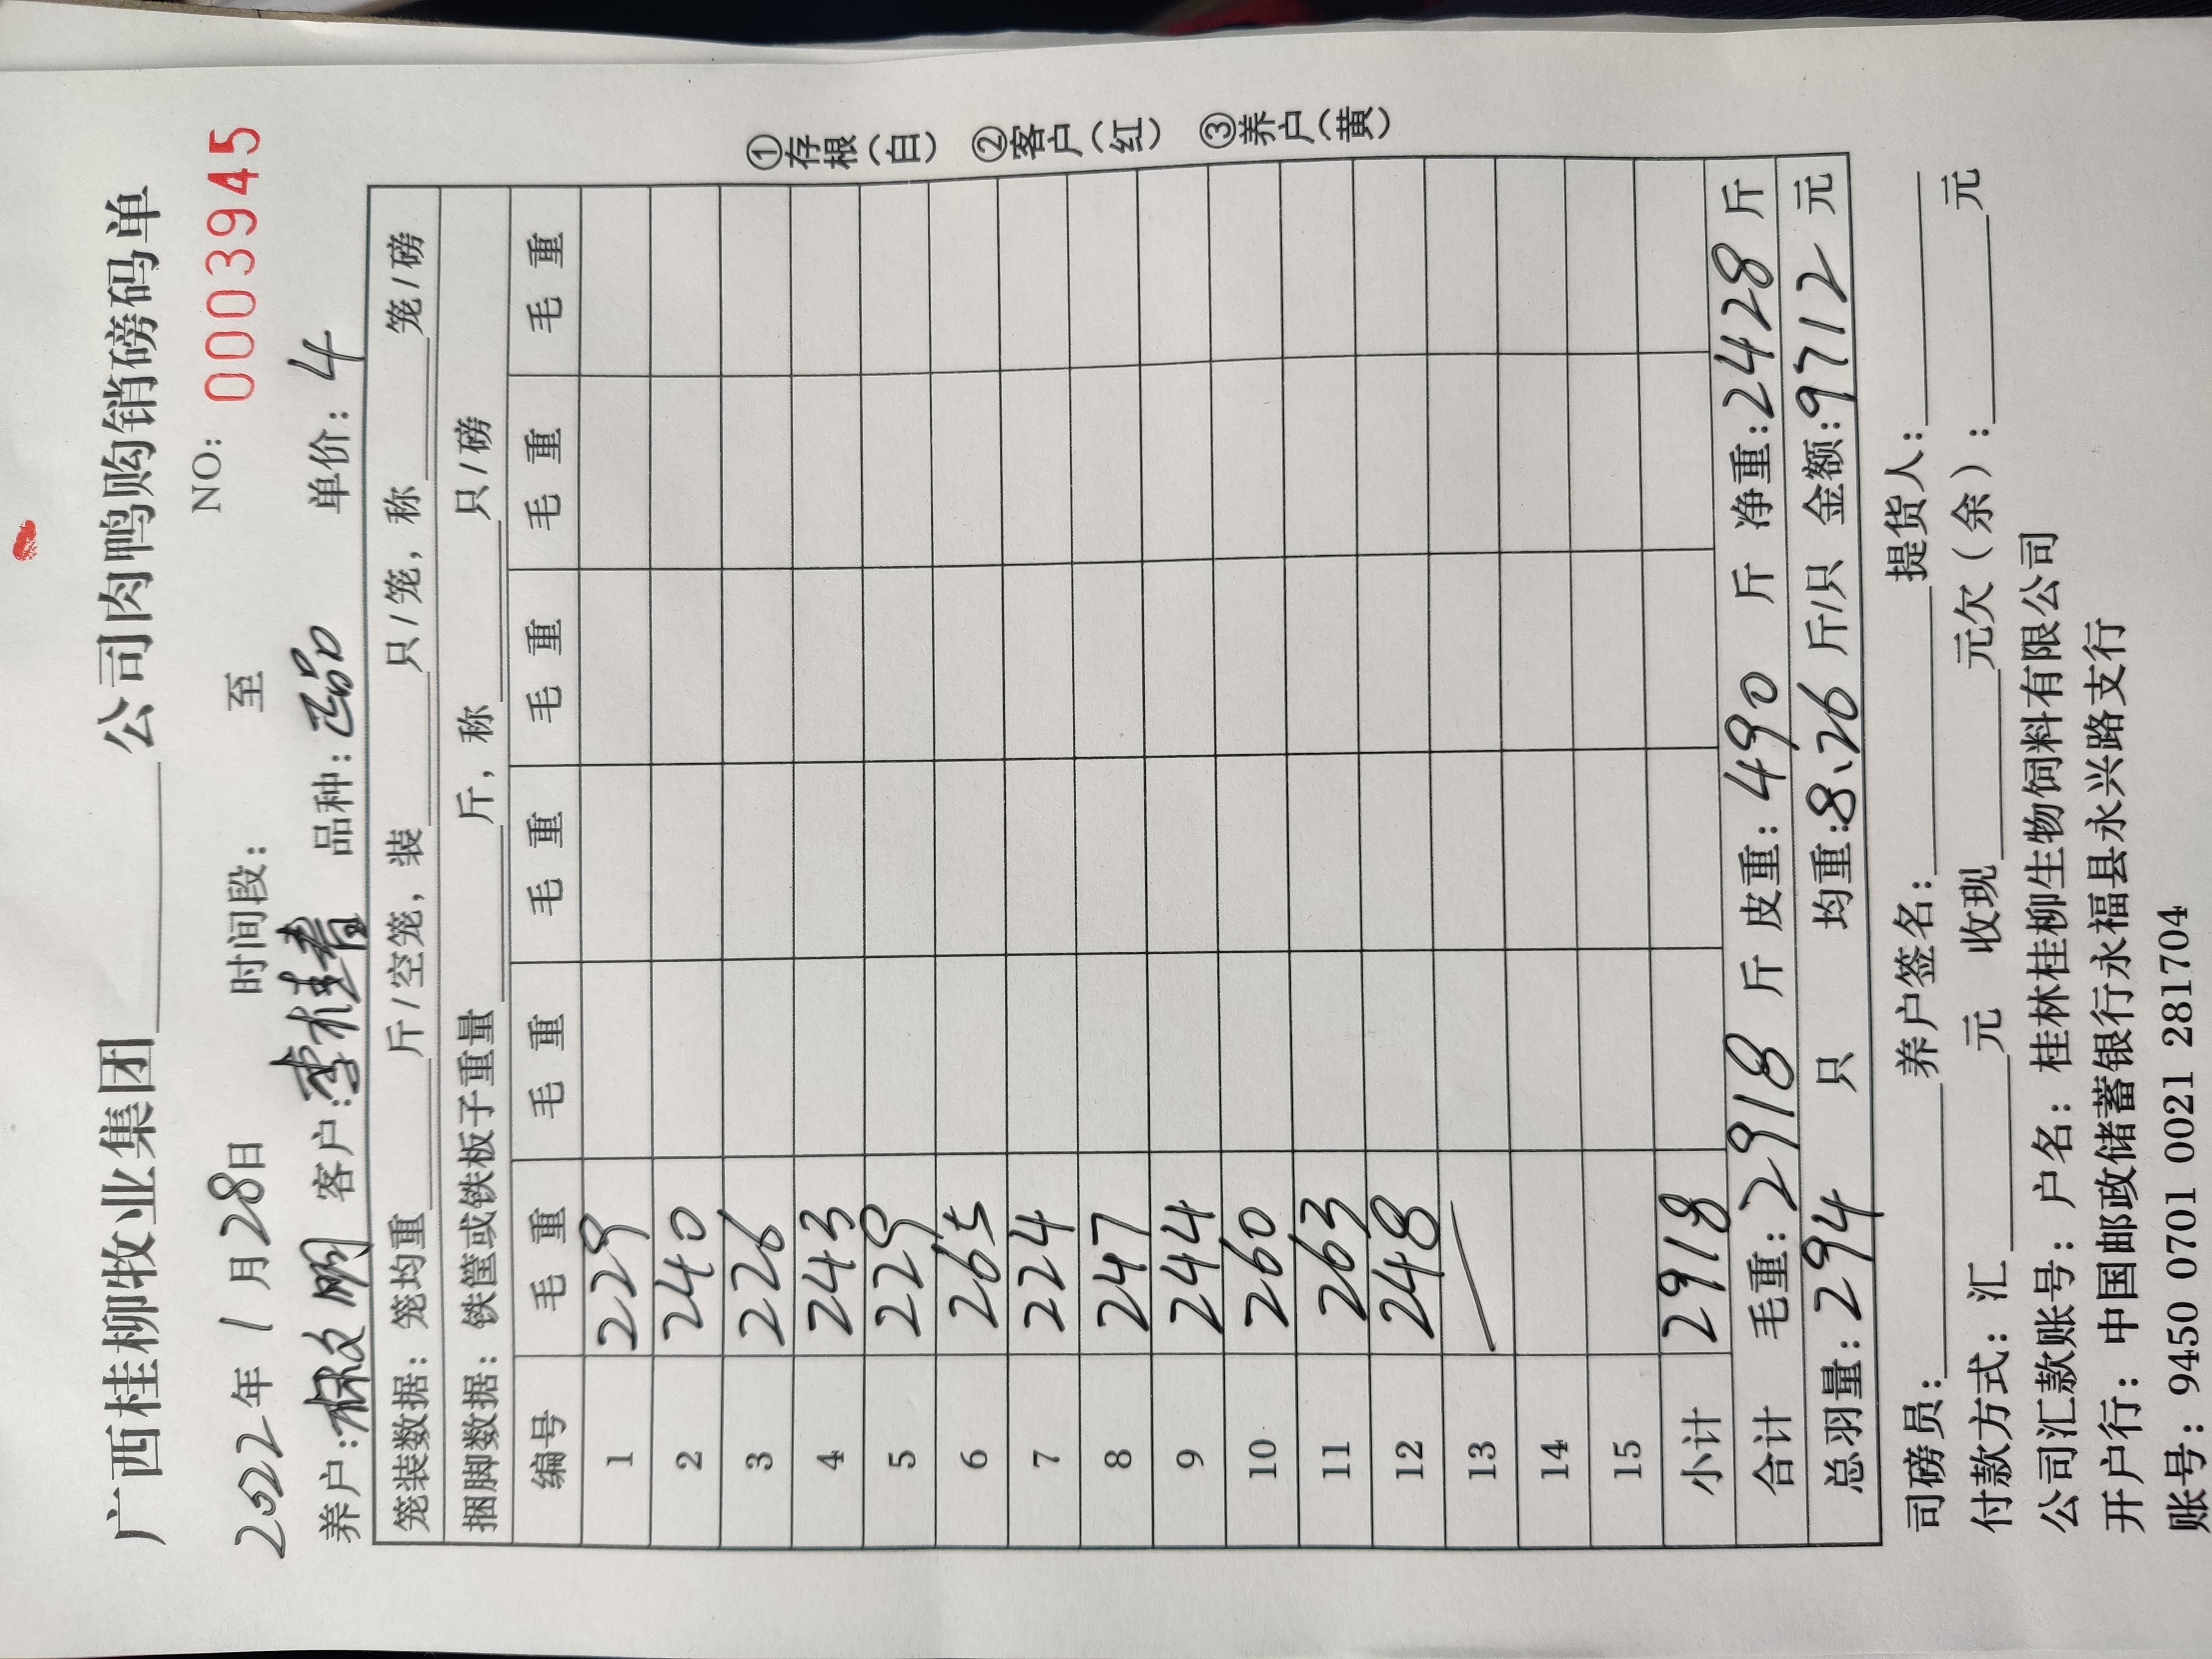 广西桂柳牧业集团______公司肉鸭购销磅码单
NO: 0003945
2022年1月28日 时间段: 至
养户: 客户:李桂青 品种:正品 单价:4
笼装数据: 笼均重______斤/空笼, 装______只/笼, 称______笼/磅
捆脚数据: 铁筐或铁板子重量______斤, 称______只/磅
编号 毛重 毛重 毛重 毛重 毛重 毛重
1 229
2 240
3 226
4 243
5 229
6 265
7 224
8 247
9 244
10 260
11 263
12 248
13
14
15
小计 2918
合计 毛重:2918斤 皮重:490斤 净重:2428斤
总羽量:294只 均重:8.26斤/只 金额:9712元
①存根(白) ②客户(红) ③养户(黄)
司磅员:______养户签名:______提货人:______
付款方式: 汇______元 收现______元欠(余):______元
公司汇款账号: 户名: 桂林桂柳生物饲料有限公司
开户行: 中国邮政储蓄银行永福县永兴路支行
账号: 9450 0701 0021 281704